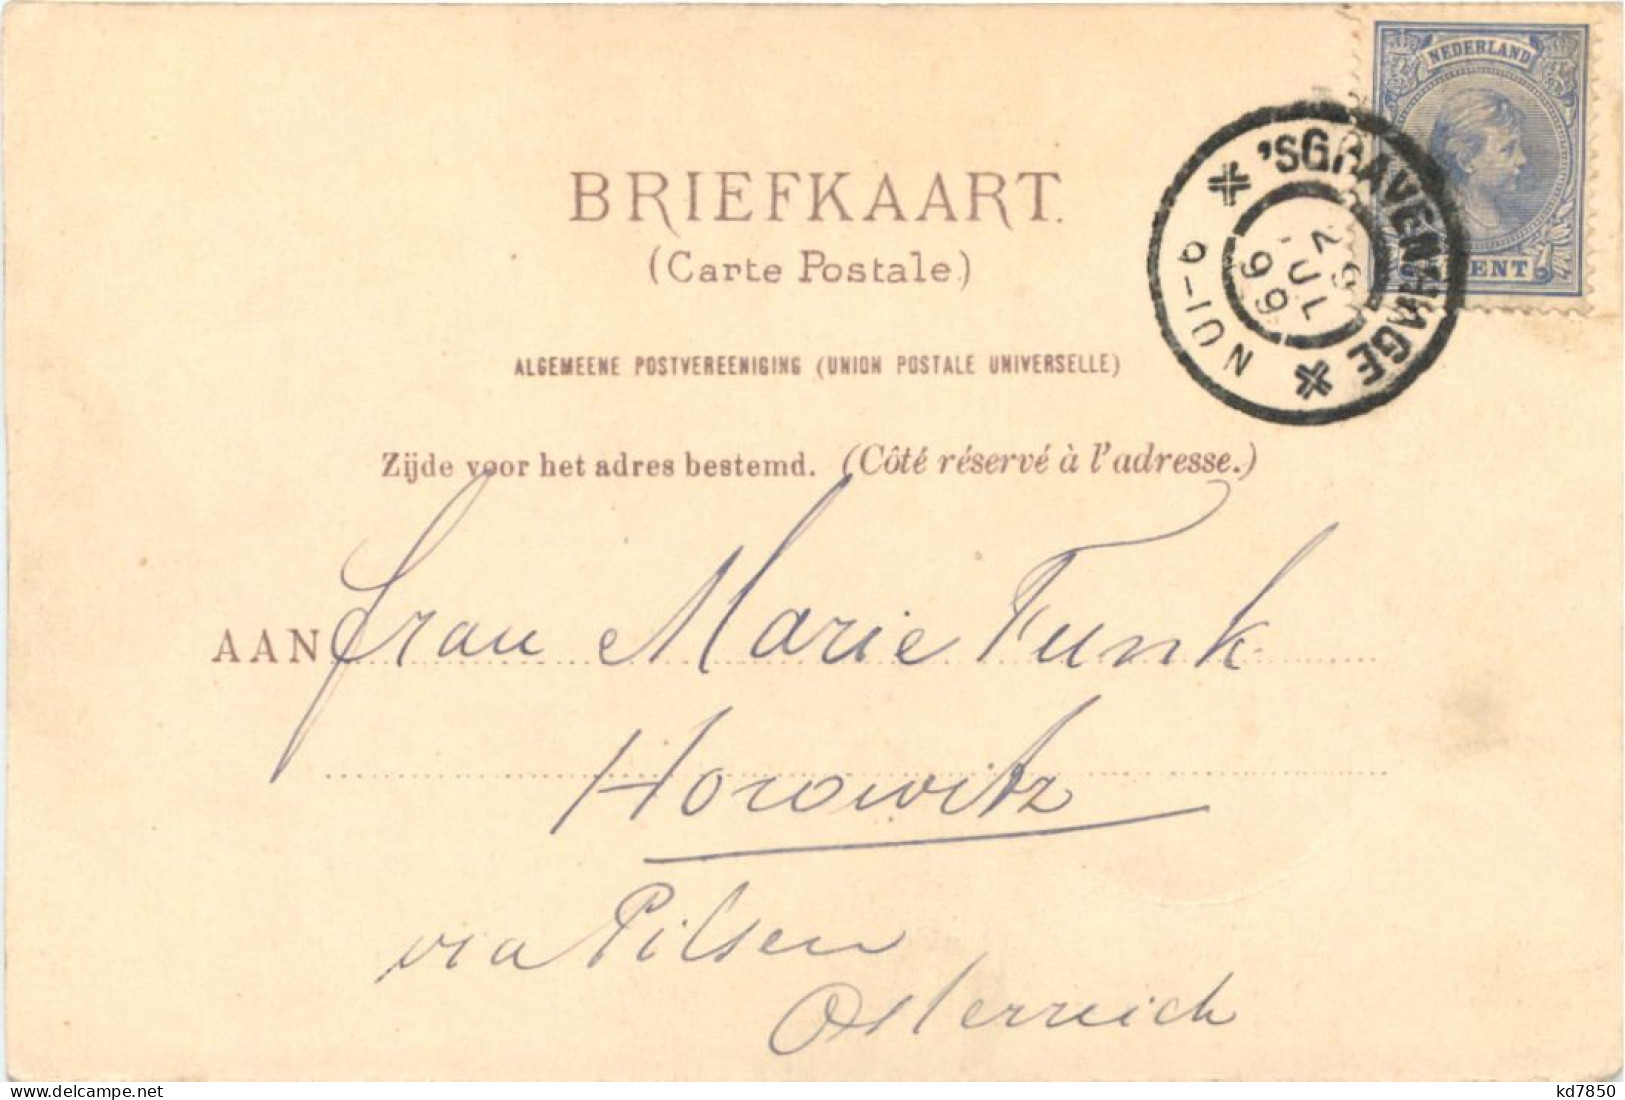 NEDERLAND
CENT
'SGRAVENHAGE
26
JUL
99
6-10 N
BRIEFKAART.
(Carte Postale.)
ALGEMEENE POSTVEREENIGING (UNION POSTALE UNIVERSELLE)
Zijde voor het adres bestemd. (Côté réservé à l'adresse.)
AAN Frau Marie Funk
Horowitz
via Pilsen
Österreich
delcampe.net
kd7850